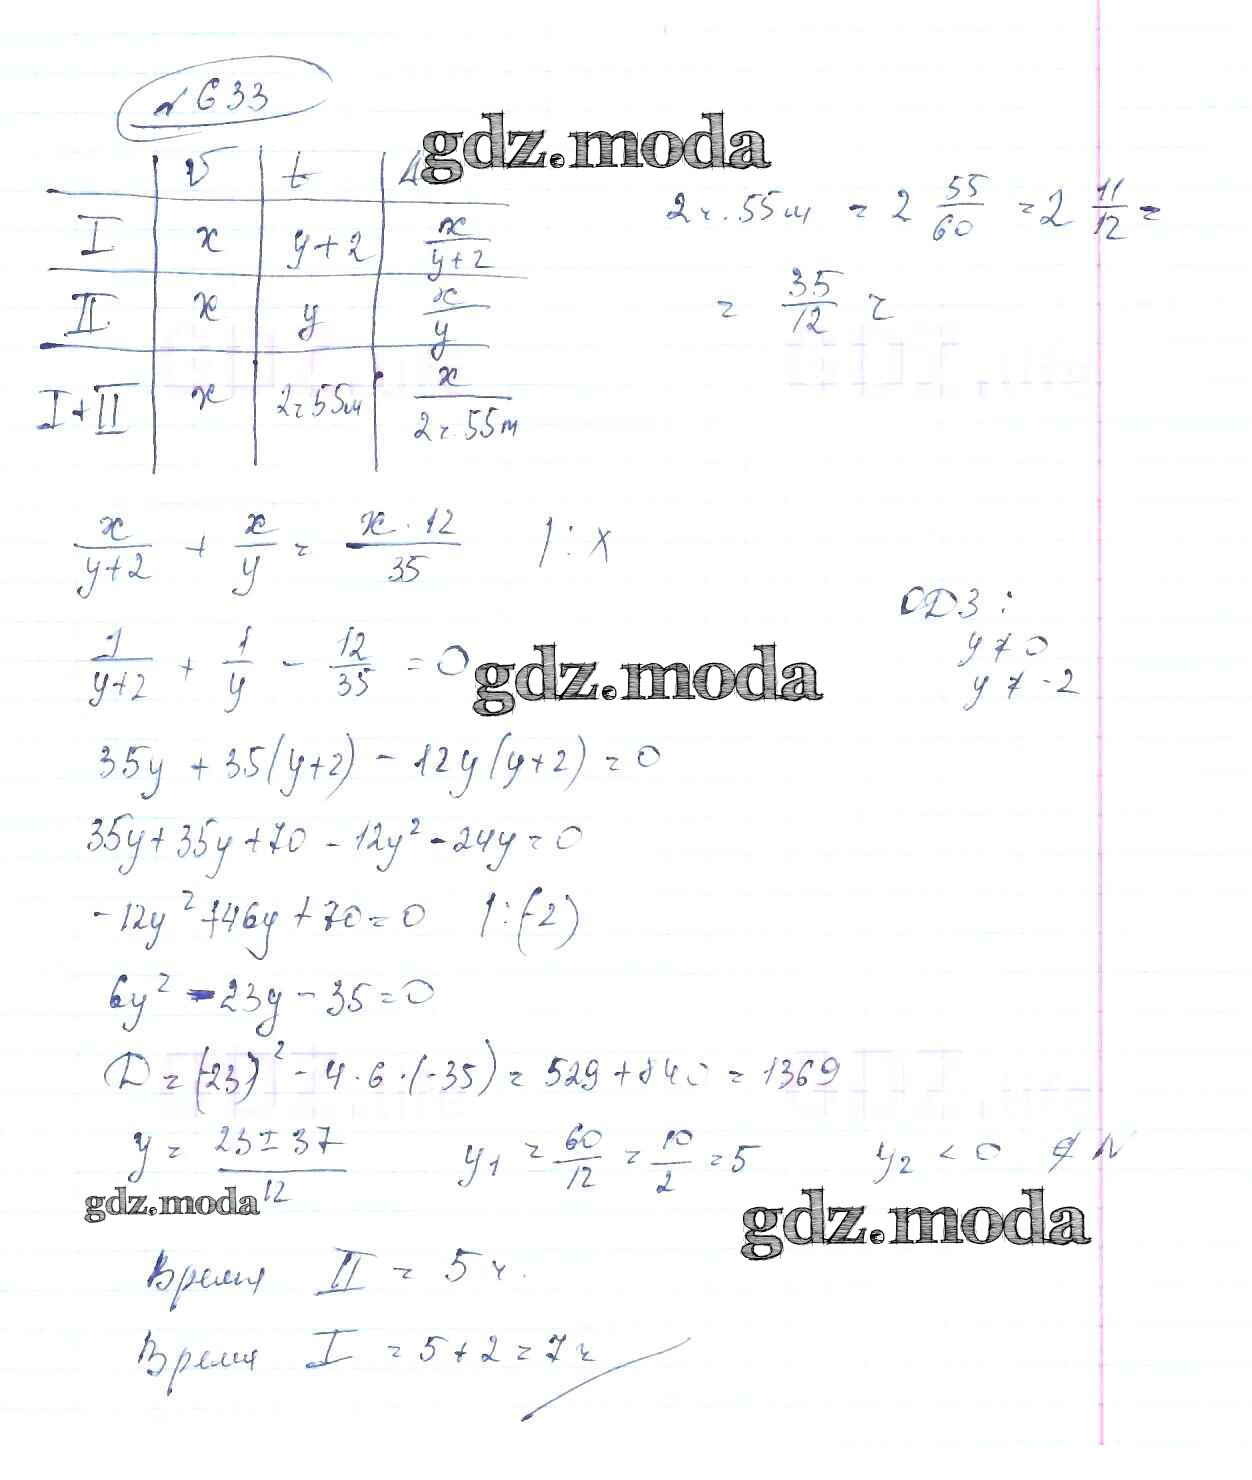 № 633
gdz.moda
V | t | A
I | x | y+2 | x/(y+2)
II | x | y | x/y
I+II | x | 2ч 55м | x/(2ч. 55м)
2ч. 55м = 2 55/60 = 2 11/12 =
= 35/12 ч
x/(y+2) + x/y = x·12/35 |: x
ОДЗ:
y ≠ 0
y ≠ -2
1/(y+2) + 1/y - 12/35 = 0
gdz.moda
35y + 35(y+2) - 12y(y+2) = 0
35y + 35y + 70 - 12y² - 24y = 0
-12y² + 46y + 70 = 0 |:(-2)
6y² - 23y - 35 = 0
D = (-23)² - 4·6·(-35) = 529 + 840 = 1369
y = (23 ± 37)/12 y₁ = 60/12 = 10/2 = 5 y₂ < 0 ∉ N
gdz.moda
gdz.moda
Время II = 5 ч.
Время I = 5 + 2 = 7 ч